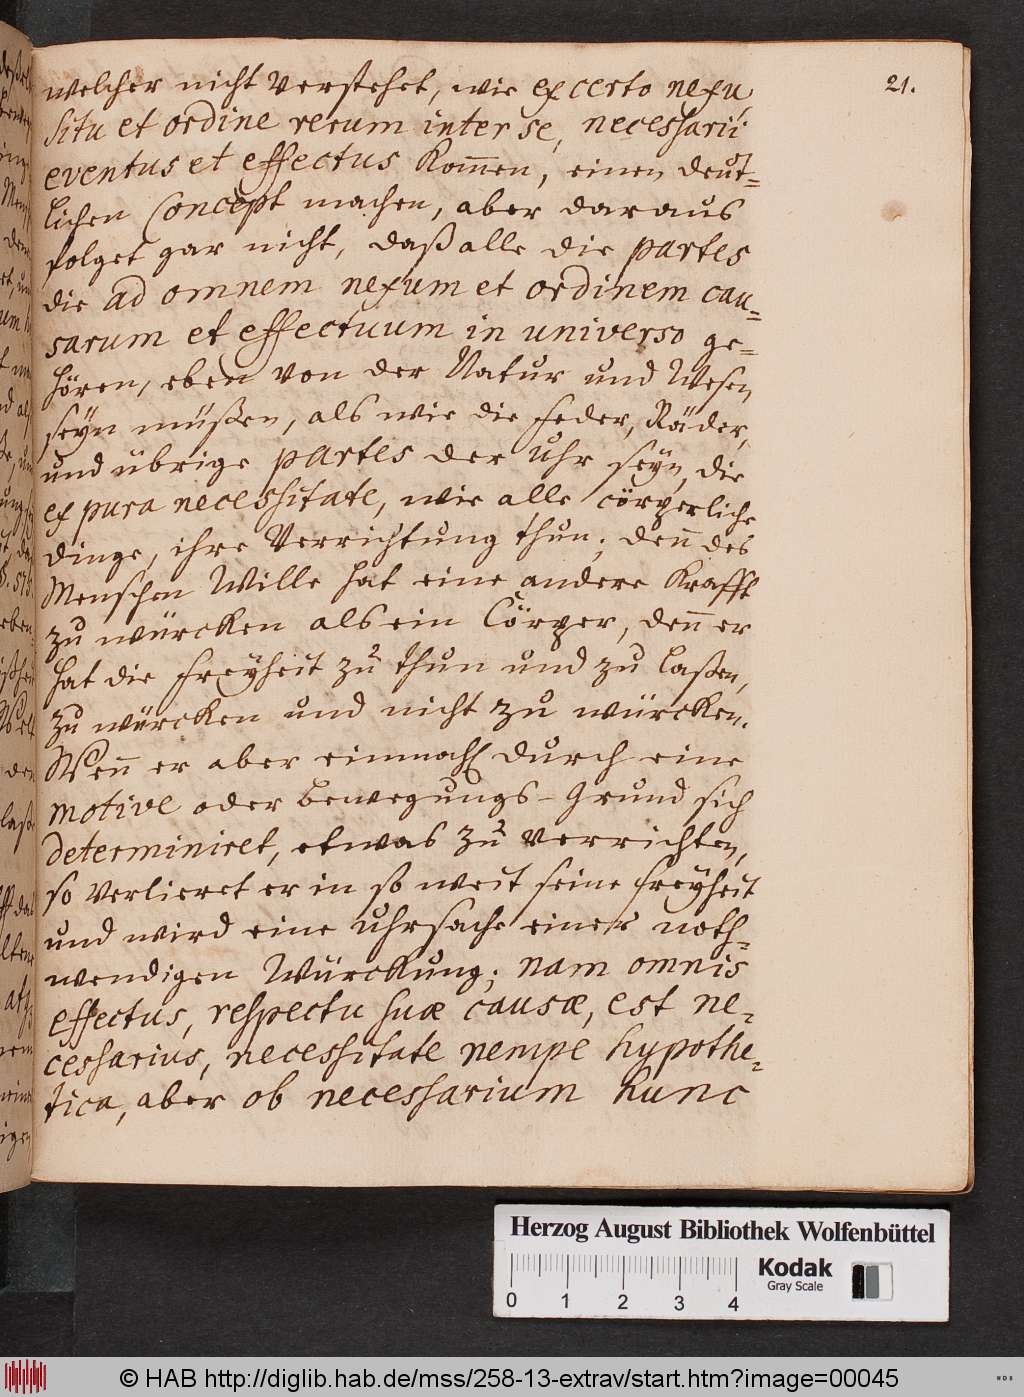 21.
welcher nicht verstehet, wie ex certo nexu,
situ et ordine rerum inter se, necessarii
eventus et effectus kom̅en, einen deut-
lichen Concept machen, aber daraus
folget gar nicht, daß alle die partes
die ad omnem nexum et ordinem cau-
sarum et effectuum in universo ge-
hören, eben von der Natur und Wesen
seÿn müßen, als wie die Feder, Räder,
und übrige partes der Uhr seÿn, die
ex pura necessitate, wie alle cörperliche
dinge, ihre Verrichtung thun; den̅ des
Menschen Wille hat eine andere Krafft
zu würcken als ein Cörper, den̅ er
hat die Freÿheit zu thun und zu laßen,
zu würcken und nicht zu würcken.
Wen̅ er aber einmahl durch eine
motive oder bewegungs-Grund sich
determiniret, etwas zu verrichten,
so verlieret er in so weit seine Freÿheit
und wird eine Uhrsache einer noth-
wendigen Würckung; nam omnis
effectus, respectu suæ causæ, est ne-
cessarius, necessitate nempe hypothe-
tica, aber ob necessarium hunc
Herzog August Bibliothek Wolfenbüttel
0 1 2 3 4
Kodak
Gray Scale
© HAB http://diglib.hab.de/mss/258-13-extrav/start.htm?image=00045